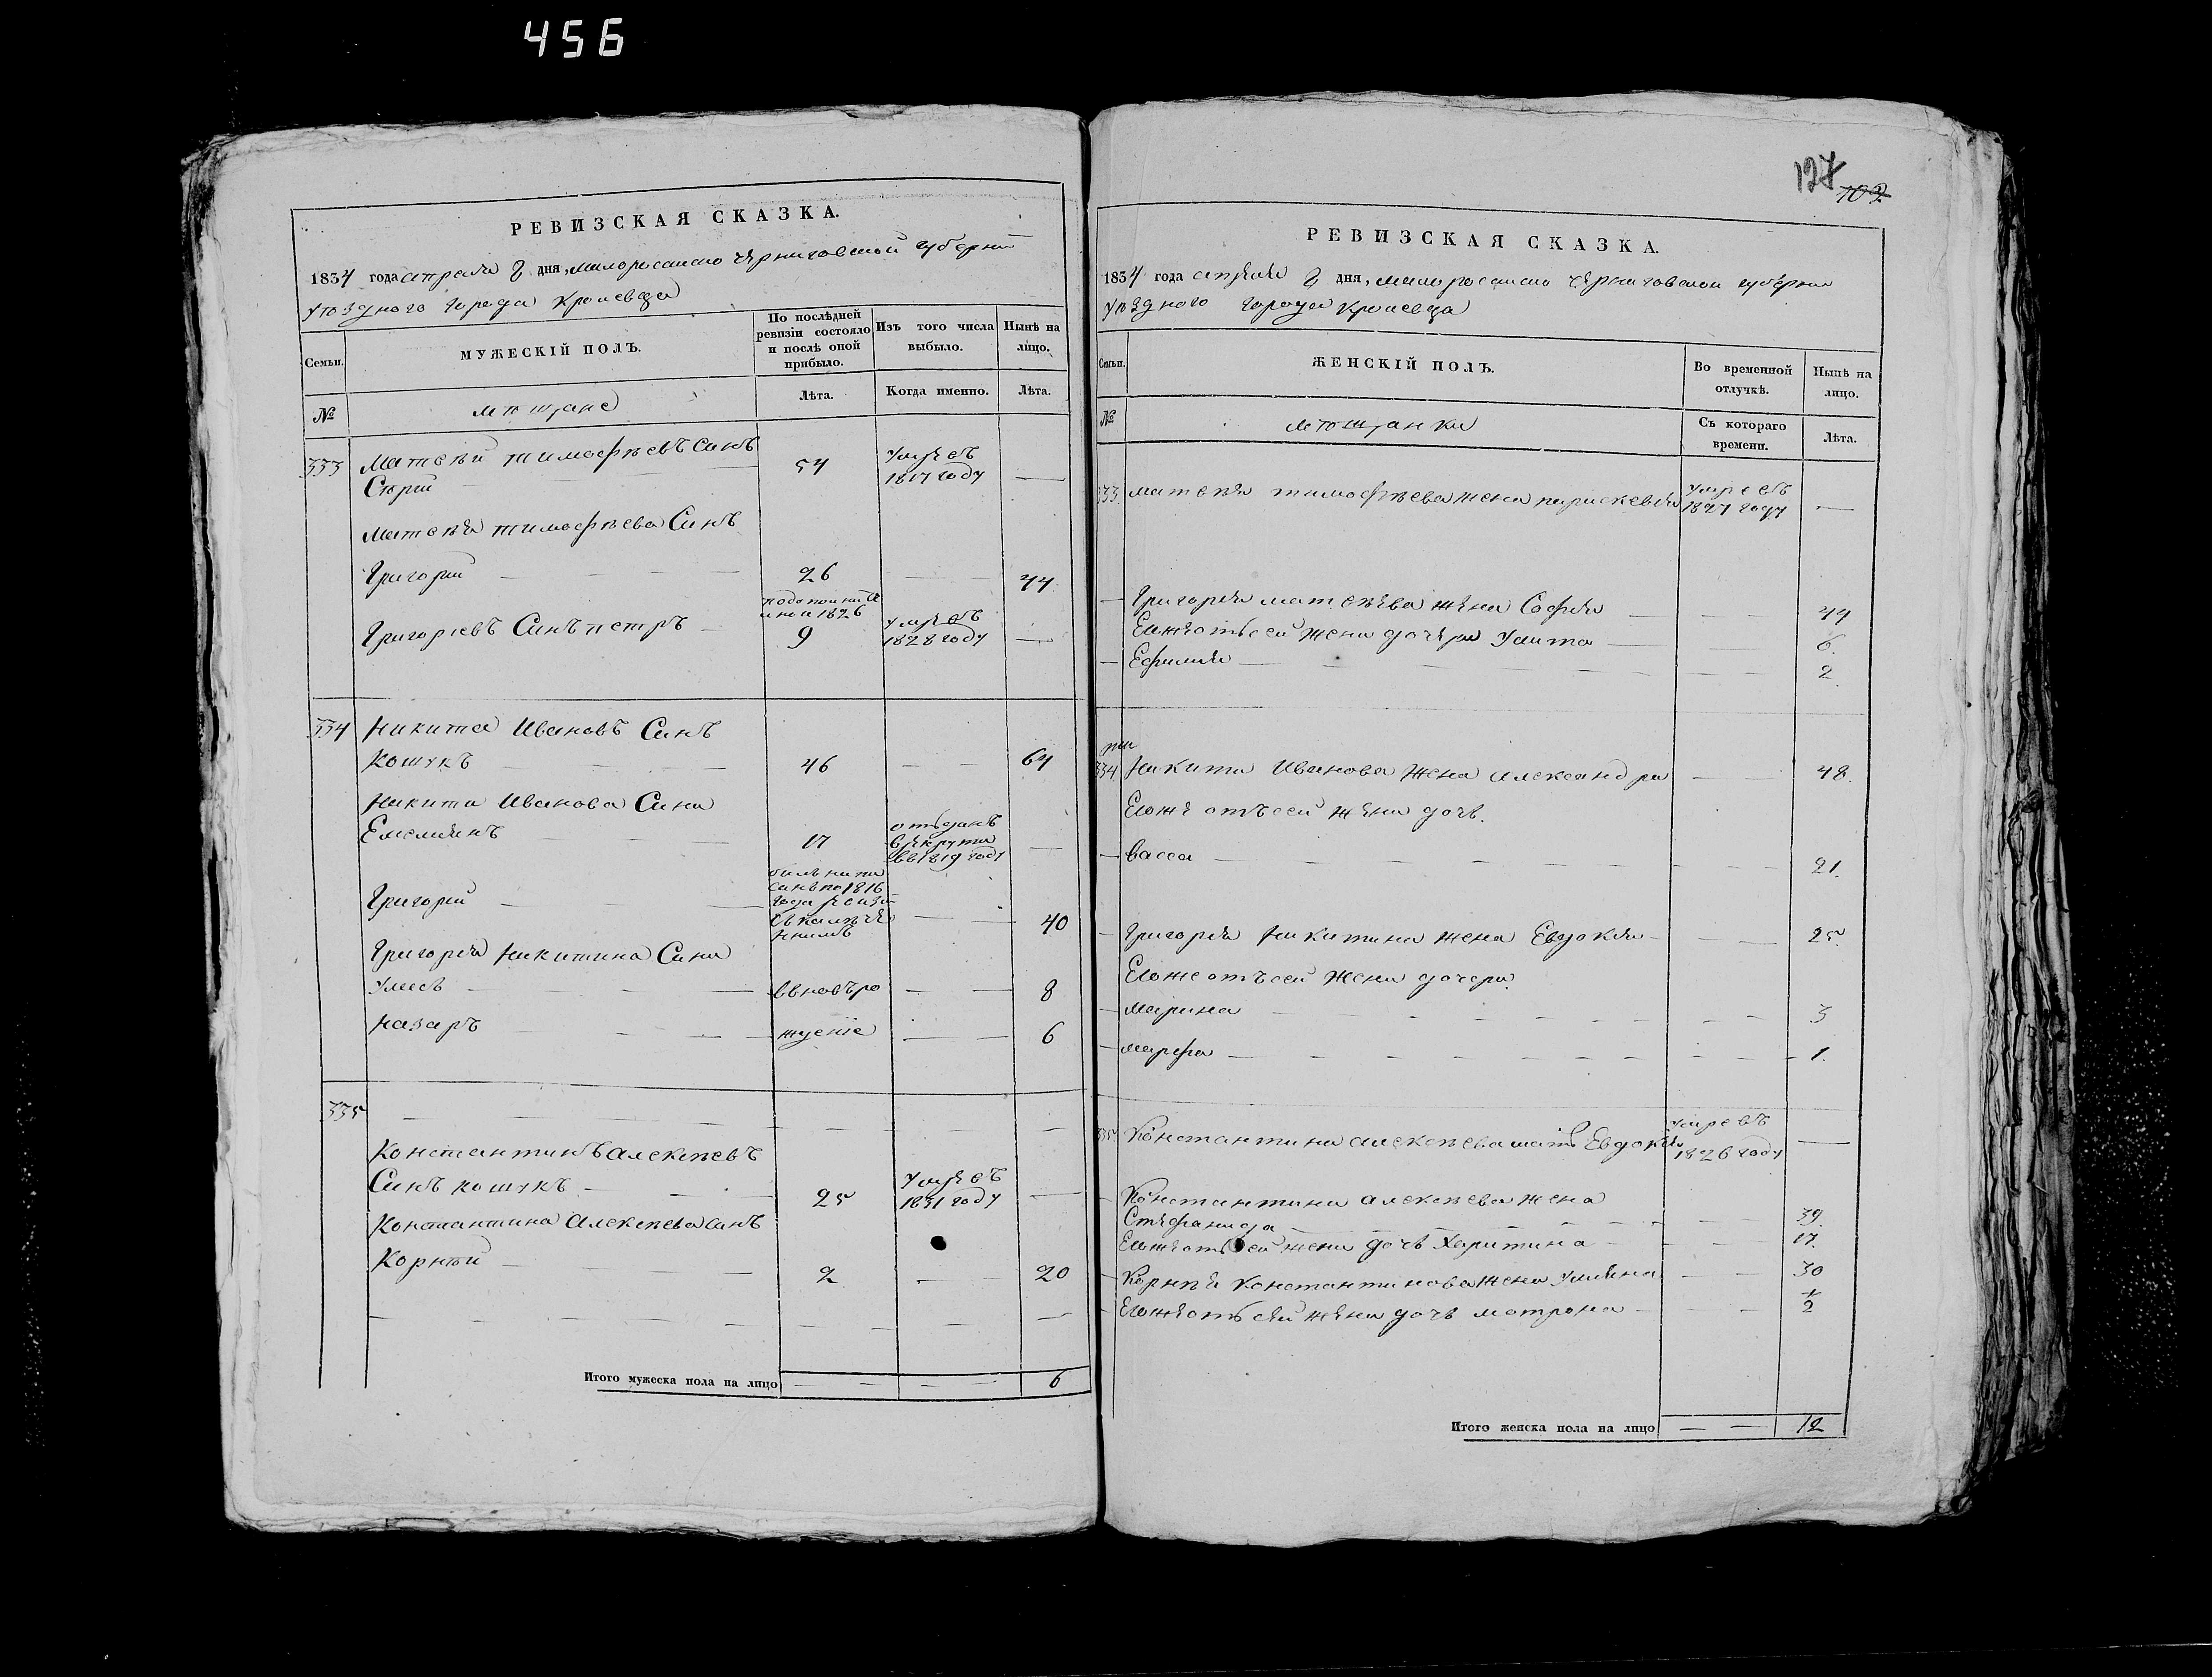 456
РЕВИЗСКАЯ СКАЗКА.
1834 года апреля 2 дня, малоросийско черниговской губернии
уѣздного города кролевца
Семьи.
МУЖЕСКІЙ ПОЛЪ.
По послѣдней ревизіи состояло и послѣ оной прибыло.
Изъ того числа выбыло.
Нынѣ на лицо.
№
мѣщане
Лѣта.
Когда именно.
Лѣта.
333 Матвѣй тимофѣевъ синъ
Сѣрій 54 умревъ 1817 году —
Матвѣя тимофѣева Синъ
Григорій — 26 — 44
Григоріевъ Синъ петръ — 9 умревъ 1828 году —
334 Никита Ивановъ Синъ
Кошукъ — 46 — 64
Никити Иванова Сини
Емелиянъ — 17 отъданъ врекрути вв1819 году —
Григорий — 40
Григория Никитина Сини
Улисъ — ввновъро — 8
Назаръ — ждение — 6
335
Константинъ алексѣевъ
Синъ кошукъ — 25 умревъ 1831 году —
Константина алексѣева синъ
Корнѣй — 2 — 20
Итого мужеска пола на лицо — — 6
127
103.
РЕВИЗСКАЯ СКАЗКА.
1834 года апреля 2 дня, малоросийско черниговской губернии
уѣздного города кролевца
Семьи.
ЖЕНСКІЙ ПОЛЪ.
Во временной отлучкѣ.
Нынѣ на лицо.
№
мѣщанки
Съ котораго времени.
Лѣта.
333 матвѣя тимофѣева жена параскевия умревъ 1827 году —
Григория матвѣева жена София — 44
Егожеотъсей жени дочери Улита — 6.
Ефимия — 2.
334 Никити Иванова жена александра — 48.
Егоже отъсей жени дочъ.
васса — 21.
Григория Никитина жена Евдокия — 25.
Егожеотъсей жени дочери
марина — 3
марфа — 1.
335 Константина алексѣева мать Евдокия умревъ 1826 году —
Константина алексѣева жена
Стефанида — 39.
Егожеотъсей жени дочъ Харитина — 17.
Корнѣя константинова жена Улияна — 30
Егожеотъ сей жени дочъ матрона — 2
Итого женска пола на лицо — — 12